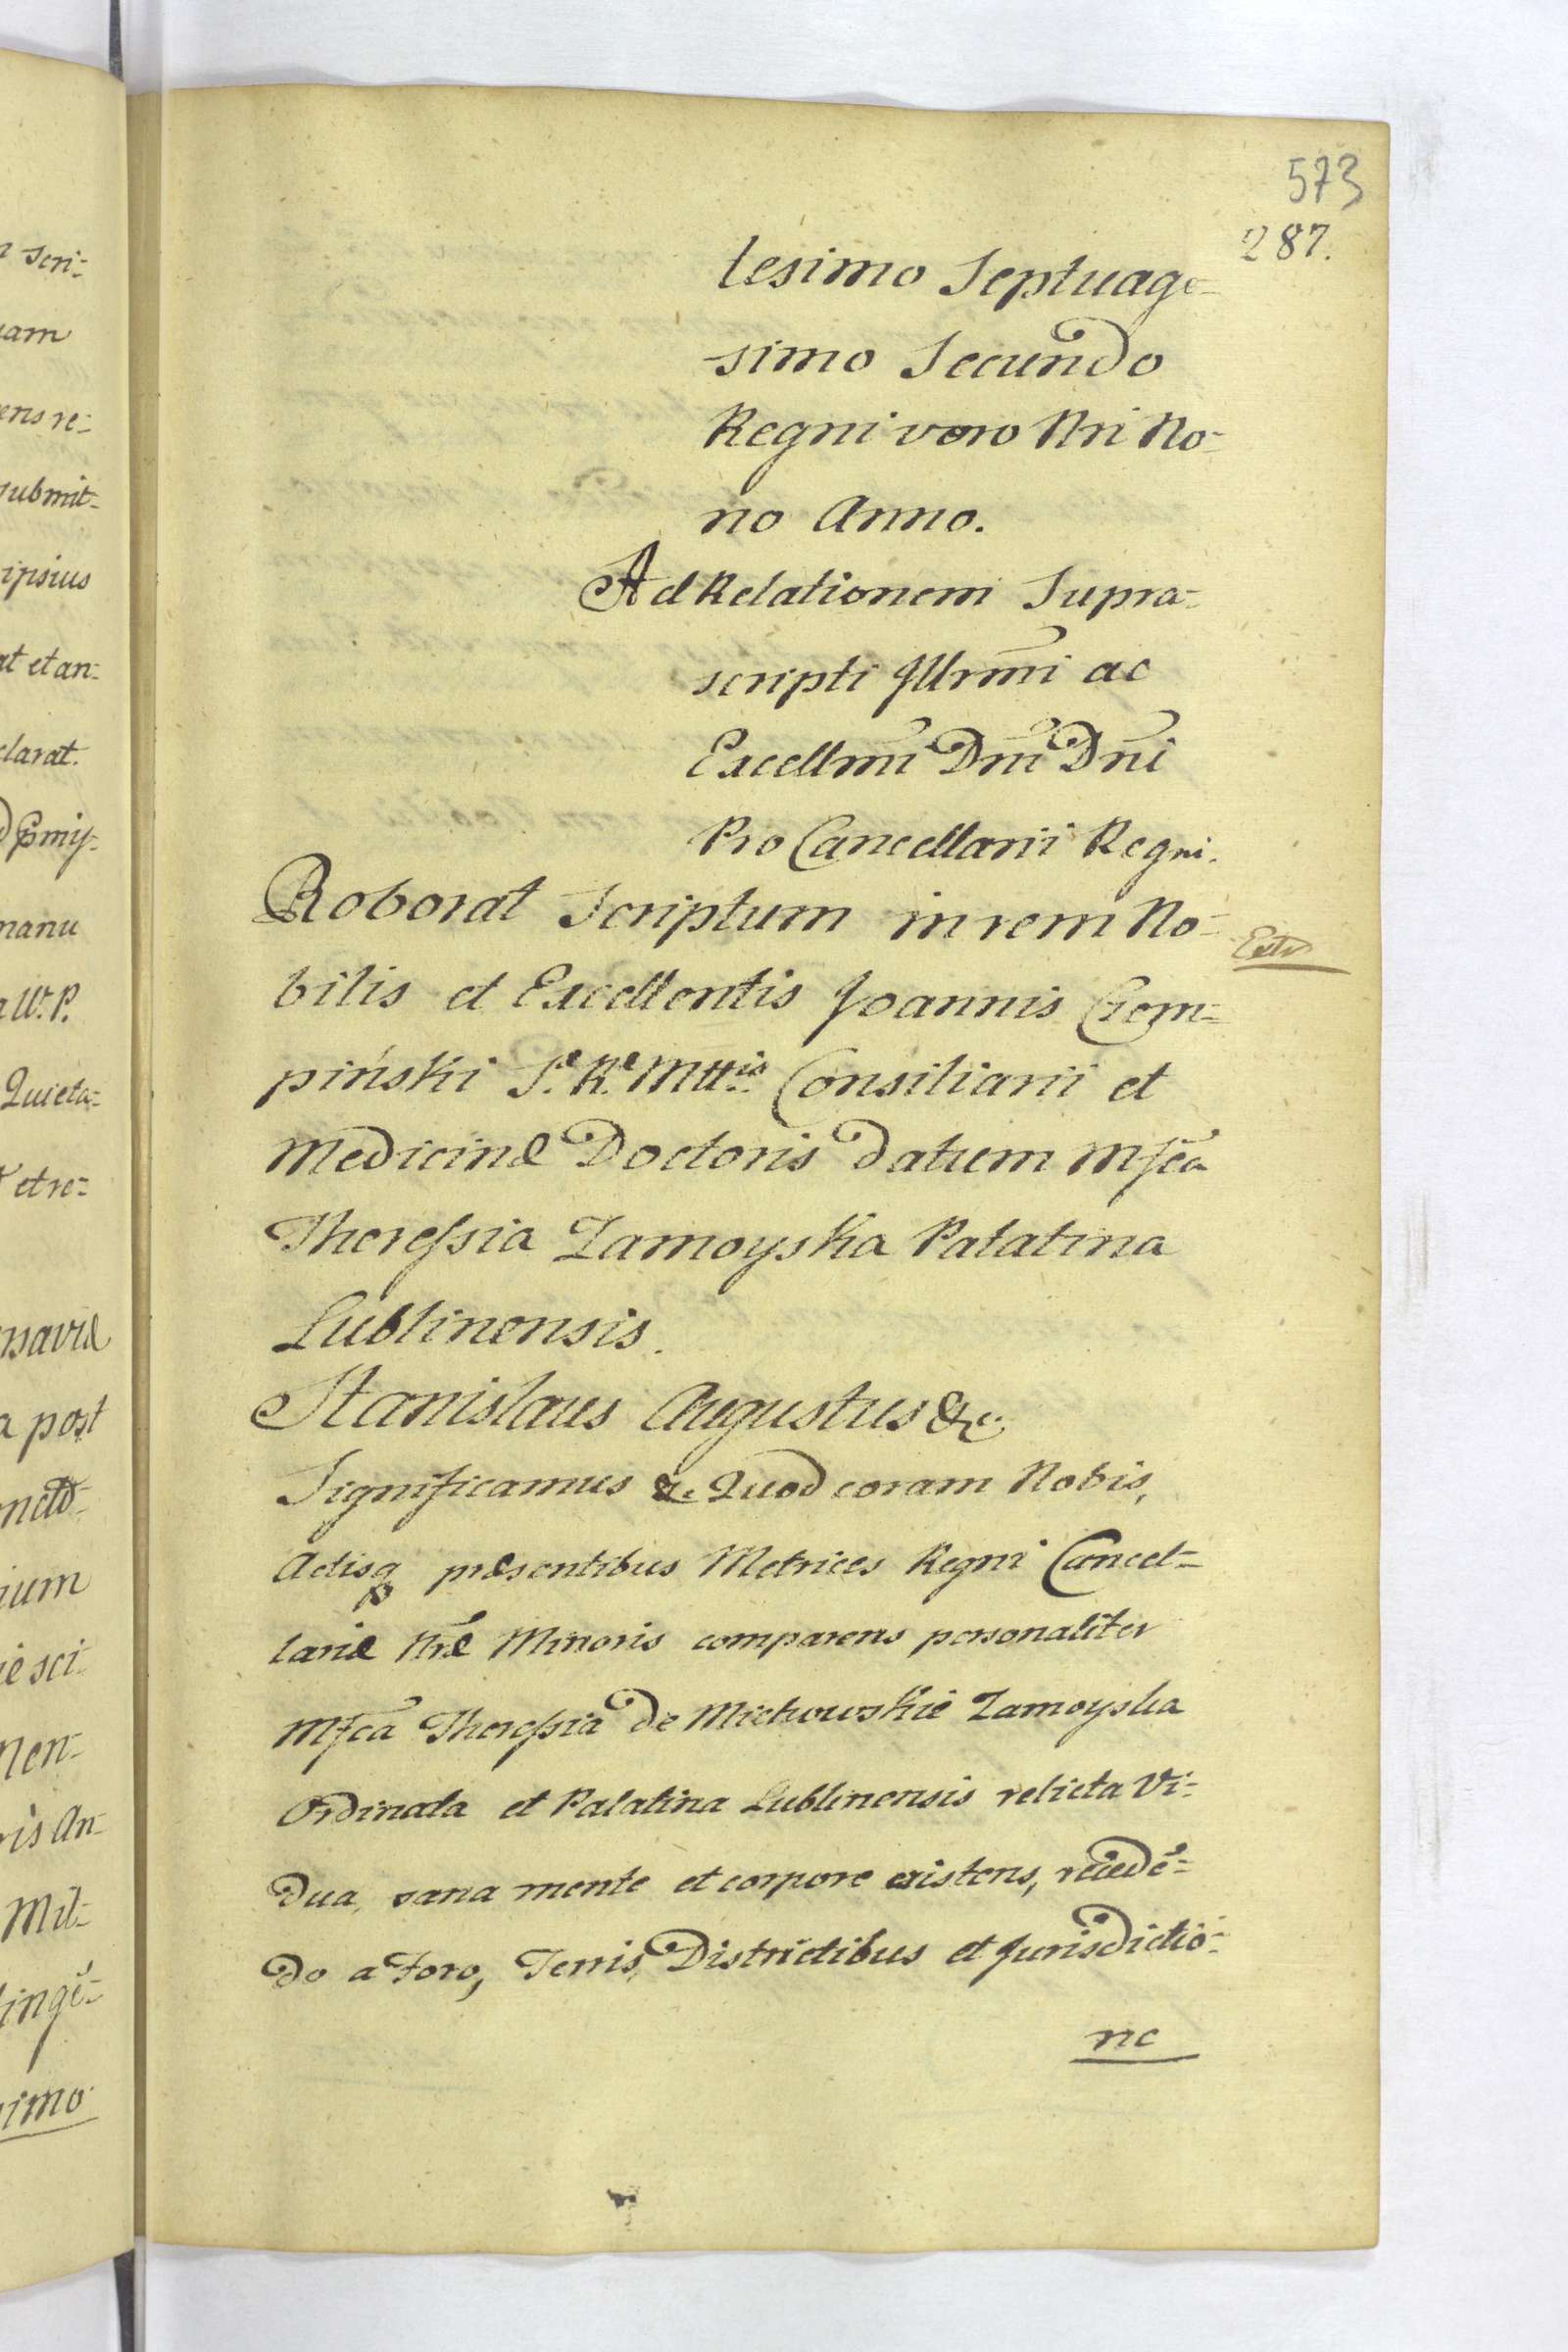 573
287.
lesimo Septuage-
simo Secundo
Regni vero Nri No-
no Anno.
Ad Relationem Supra-
scripti Jllrmi ac
Excellmi Dni Dni
Pro Cancellarii Regni.
Roborat Scriptum in rem No-
Extr
bilis et Excellentis Joannis Czem-
piński Sᵉ. Rᵉ. Mttis Consiliarii et
Medicinæ Doctoris datum Mfca
Theressia Zamoyska Palatina
Lublinensis.
Stanislaus Augustus &c.
Significamus &c. Quod coram Nobis,
Actisq præsentibus Metrices Regni Cancel-
lariæ Nræ Minoris comparens personaliter
Mfca Theressia de Michowskie Zamoyska
Ordinata et Palatina Lublinensis relicta Vi-
dua, sana mente et corpore existens, recedē-
do a Foro, Terris, Districtibus et Jurisdictio-
ne
n scri-
uam
ens re-
submit-
ipsius
at et an-
clarat.
manu
a W. P.
Quieta-
et re-
nsaviæ
a post
ium
ie sci
men-
ris An-
Mil-
tingē-
simo